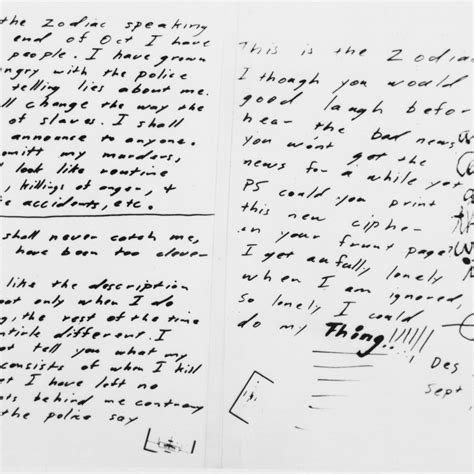 the zodiac speaking
end of Oct I have
people. I have grown
ngry with the police
telling lies about me.
ll change the way the
of slaves. I shall
announce to anyone.
omitt my murders,
look like routine
, killings of anger, +
e accidents, etc.
shall never catch me,
have been too clever
like the description
not only when I do
g, the rest of the time
entirle different. I
ot tell you what my
consists of when I kill
et I have left no
nts behind me contrary
the police say
This is the Zodiac
I though you would
good laugh befor
hear the bad news
you wont get the
news for a while yet
PS could you print
this new ciphe
in your frunt page?
I get aufully lonely
when I am ignored,
so lonely I could
do my Thing!!!!!!
Des
Sept